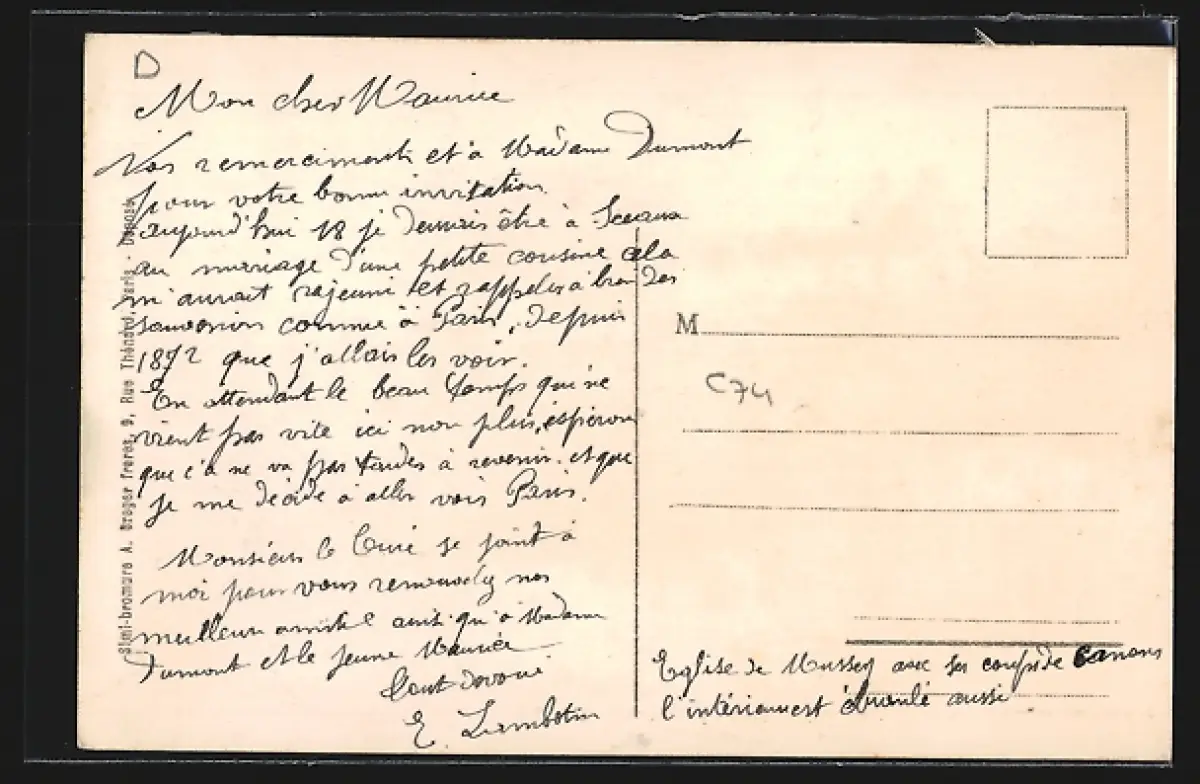 D
Mon cher Maurice
Nos remerciments et à Madame Dumont
pour votre bonne invitation
aujourd'hui 18 je devrais être à Sceaux
au mariage d'une petite cousine cela
m'aurait rajeuni et rappeler bien des
souvenirs comme à Paris, depuis
1892 que j'allais les voir.
En attendant le beau temps qui ne
vient pas vite ici non plus, espérons
que ça ne va pas tarder à revenir et que
je me décide à aller voir Paris.
Monsieur le Curé se joint à
moi pour vous nos
meilleurs amitié ainsi qu'à Madame
Dumont et le jeune Maurice
Tout dévoué
E. Lambotin
Simi-bromure A. Breger frères, 9, Rue Thénard, Paris - Déposé
M
C74
Eglise de Mussey avec ses coups de canons
l'intérieument ébranlé aussi